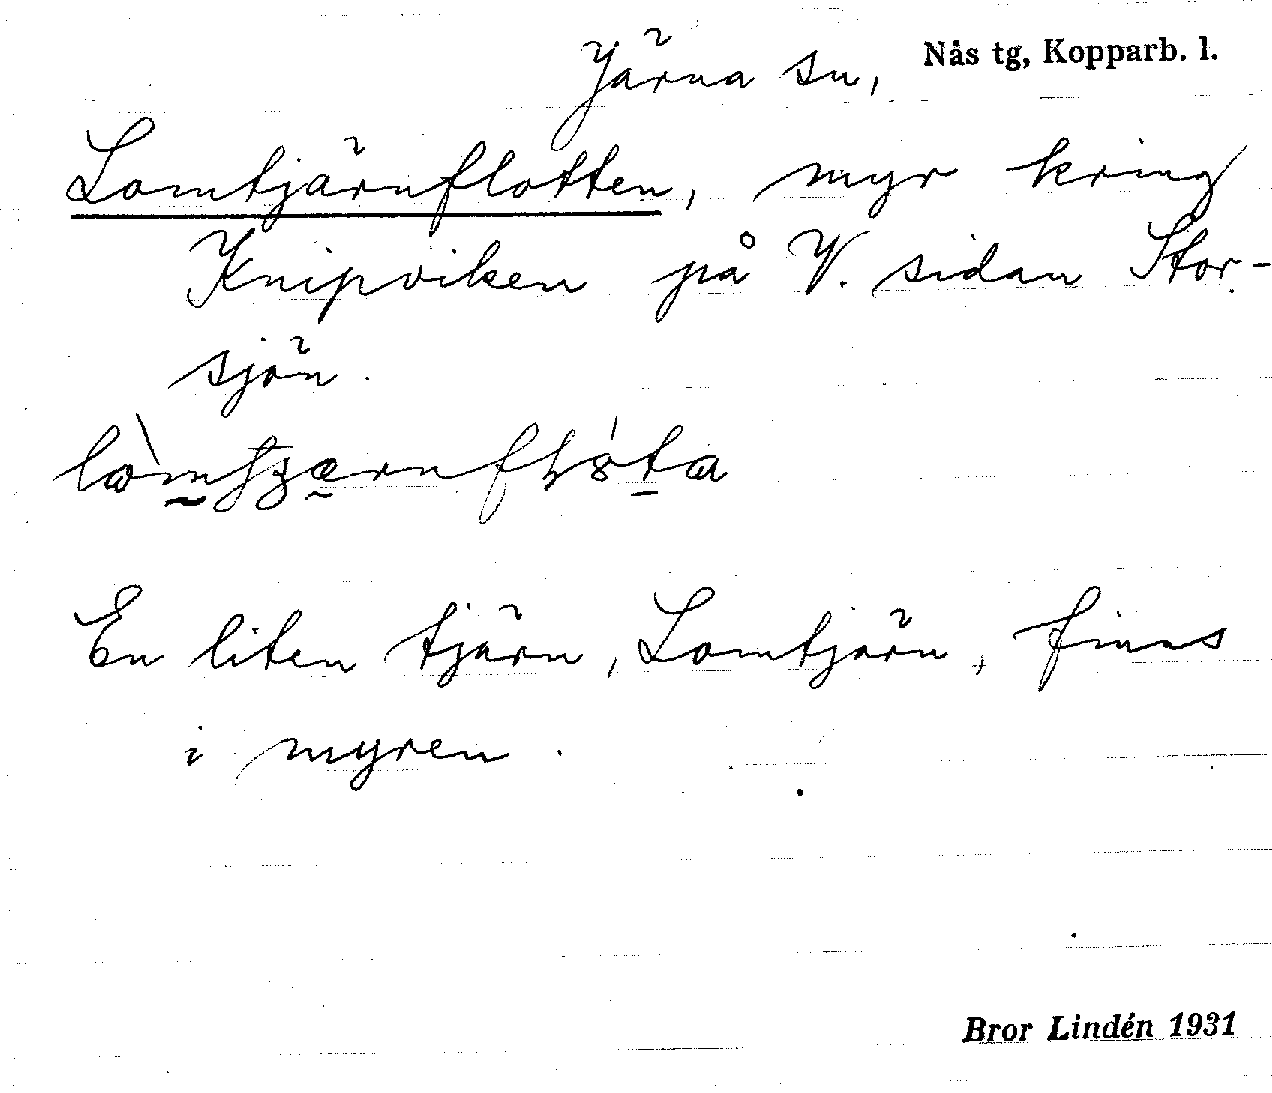 Järna sn, Nås tg, Kopparb. l.
Lomtjärnflotten, myr kring
Knipviken på V. sidan Stor-
sjön.
En liten tjärn, Lomtjärn, finns
i myren.
Bror Lindén 1931